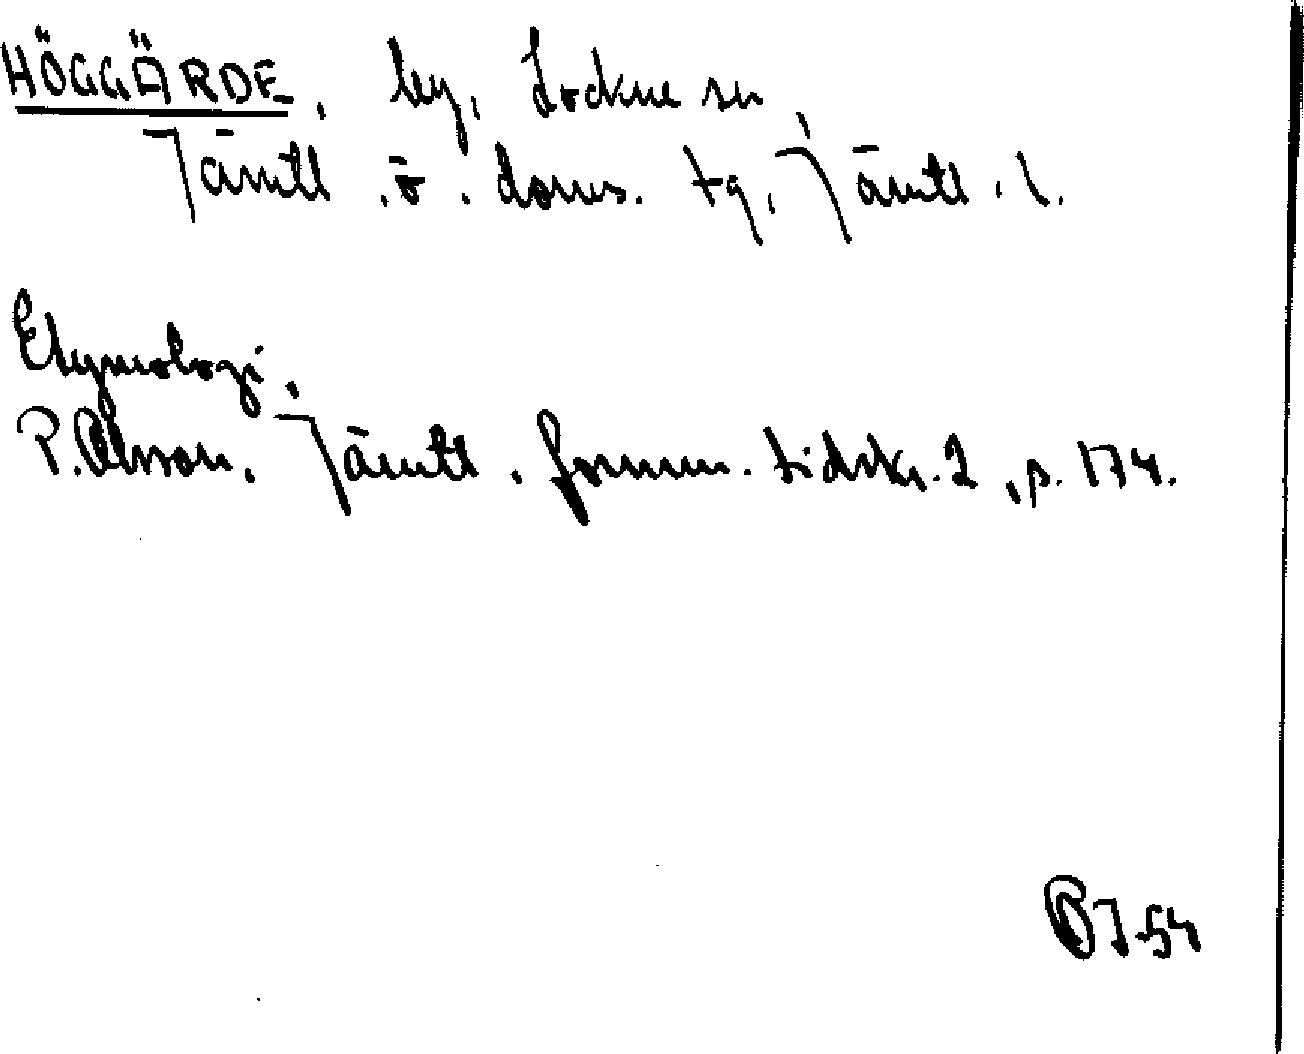 HÖGGÄRDE, by, Lockne sn,
Jämtl. ö. doms. tg, Jämtl. l.
Etymologi.
P. Olsson, Jämtl. fornm. tidskr. 2, s. 174.
OJ-54